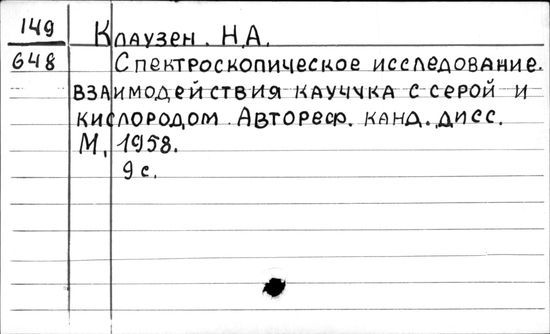 149 Клаузен. Н.А.
648 Спектроскопическое исследование.
взаимодействия каучука с серой и
кислородом. Автореф. канд. дисс.
М, 1958.
9 с.